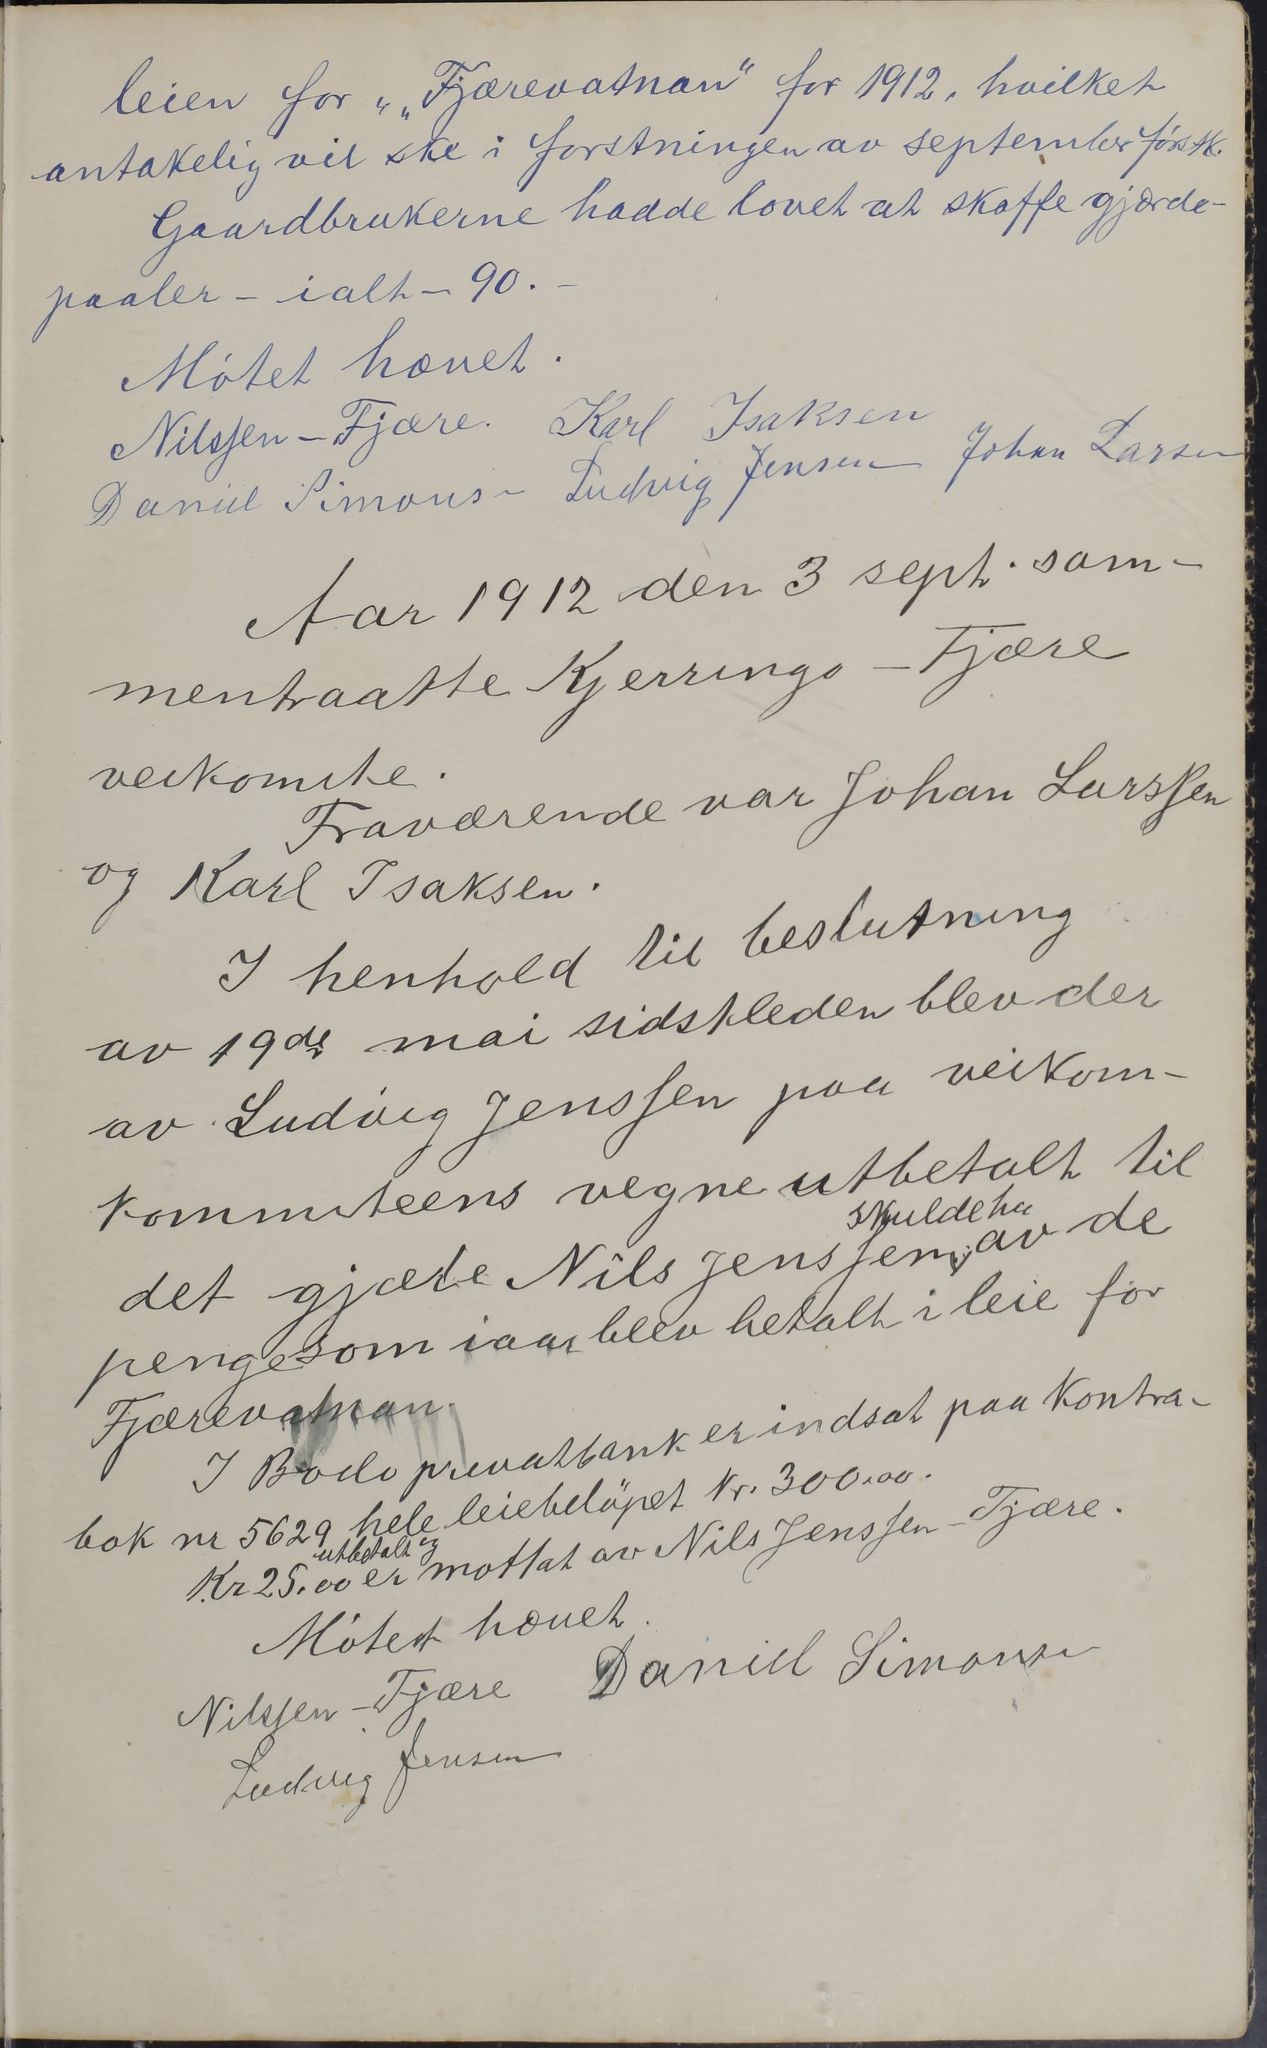 leien for „„Fjærevatnan“ for 1912, hvilket
antakelig vil ske i forstningen av september førstk.
Gaardbrukerne hadde lovet at skaffe gjærde-
paaler – ialt – 90. –
Møtet hævet.
Nilssen – Fjære. Karl Isaksen
Daniel Simons- Ludvig Jensen Johan Larsen
Aar 1912 den 3 sept. sam-
mentraatte Kjerringø – Fjære
veikomite.
Fraværende var Johan Larssen
og Karl Isaksen.
I henhold til beslutning
av 19de mai sidstleden blev der
av Ludvig Jenssen paa veikom-
kommiteens vegne utbetalt til
skulde ha
det gjæle Nils Jenssen, av de
penge som iaar blev betalt i leie for
Fjærevatnan.
I Bodo privatbank er indsat paa Kontra-
bok nr 5629 hele leiebeløpet Kr. 300.00.
utbetalt og
Kr 25.00 er mottat av Nils Jenssen – Fjære.
Møtet hævet.
Nilssen – Fjære Daniel Simonsen
Ludvig Jensen